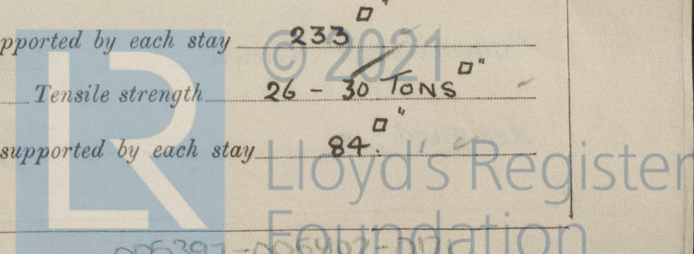 pported by each stay 233 □"
© 2021
Tensile strength 26 - 30 TONS □"
supported by each stay 84. □"
LR
Lloyd's Register
Foundation